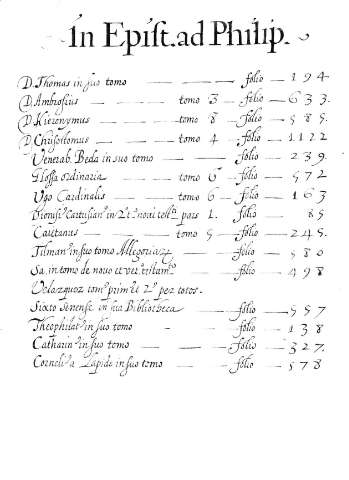 In Epist. ad Philip.
D. Thomas in suo tomo — folio — 194
D. Ambrosius — tomo 3 — folio — 633.
D. Hieronymus — tomo 8 — folio — 585.
D. Chrisostomus — tomo 4 — folio — 1122
Venerab. Beda in suo tomo — folio — 239.
Glossa ordinaria — tomo 6 — folio — 572
Ugo Cardinalis — tomo 6 — folio — 163
Dionisi9 Cartusian9 in pars 1. folio — 85
Caietanus — tomo 5 — folio — 245.
Tilman9 in suo tomo Allegoriarum — folio — 580
Sa. in tomo de nouo et vet. testam. — folio — 498
Velazquez tom. prim. et 2. per totos.
Sixto Senense in sua Bibliotheca — folio — 557
Theophilat9 in suo tomo — folio — 138
Catharin9 in suo tomo — folio — 327.
Corneli9 a Lapide in suo tomo — folio — 578